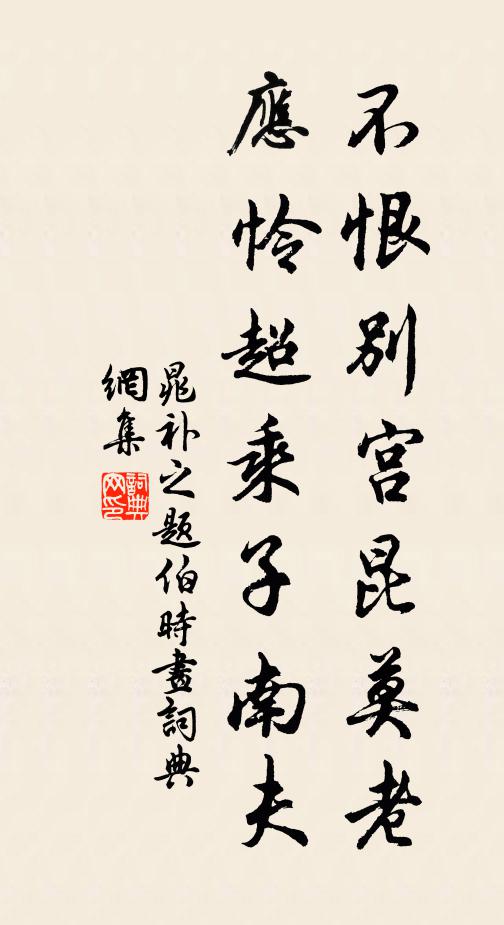 不恨別宮昆莫老
應怜超乘子南夫
晁补之题伯時畫詞典
網集
詞典网印